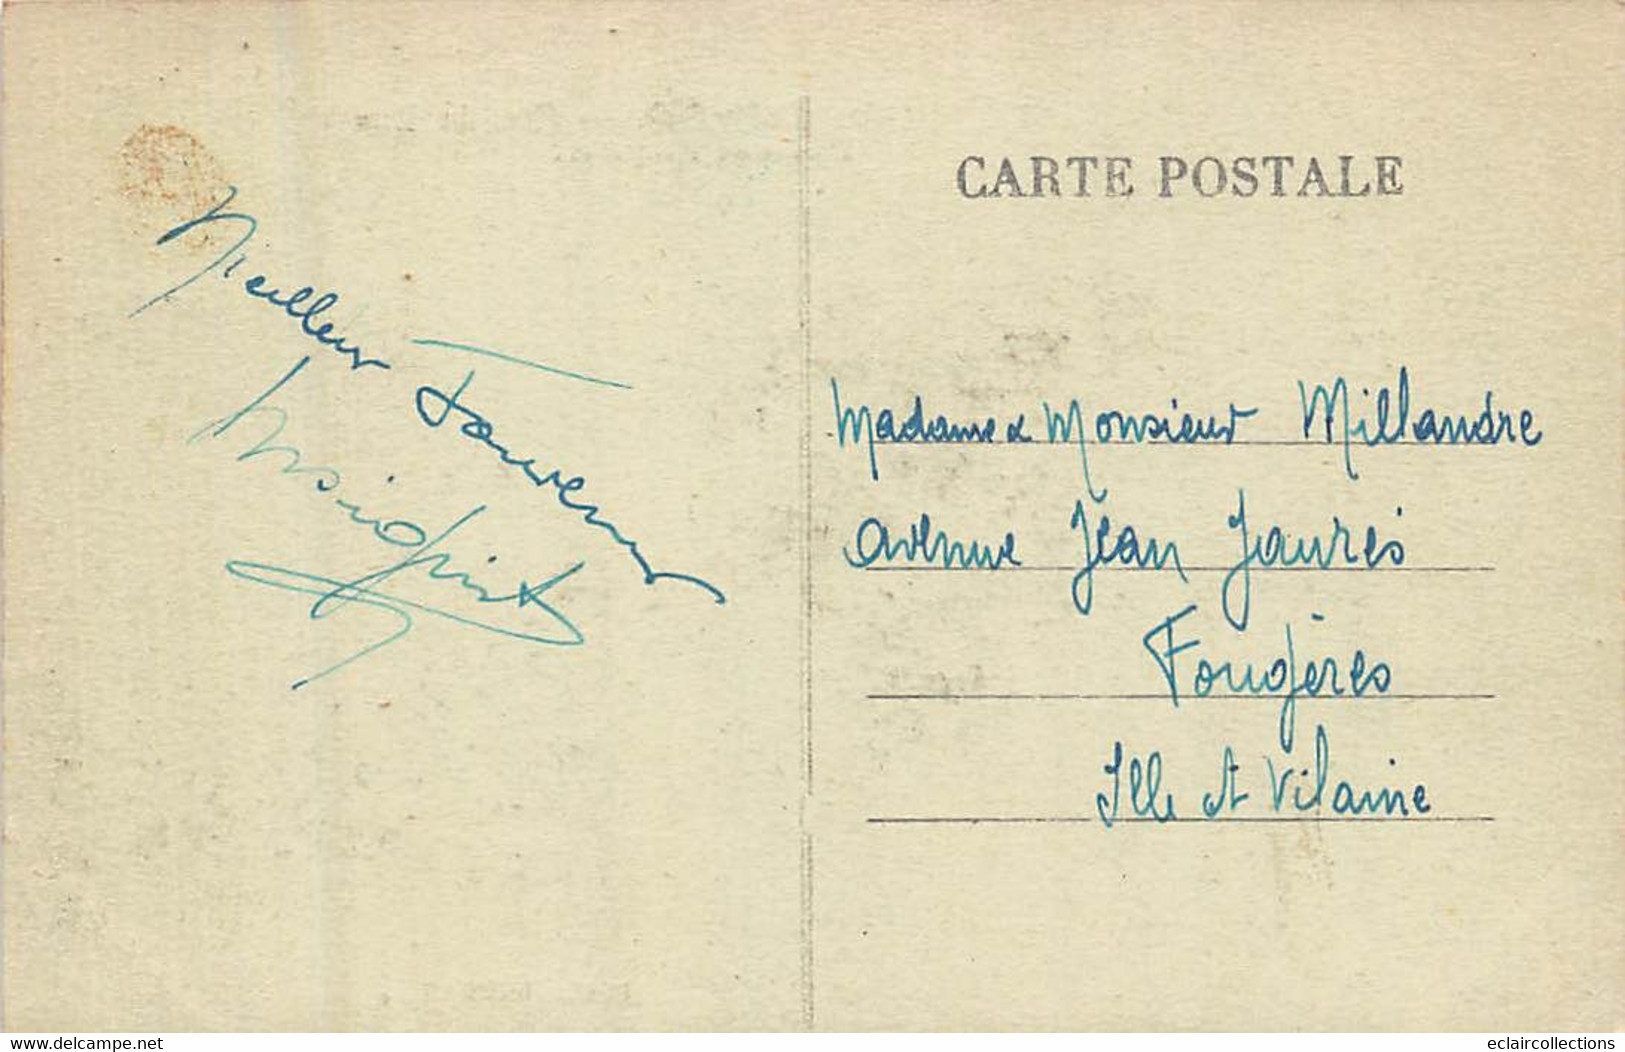 Meilleur Souvenir
CARTE POSTALE
Madame & Monsieur Millandre
avenue Jean Jaurès
Fougères
Ille et Vilaine
delcampe.net
eclaircollections